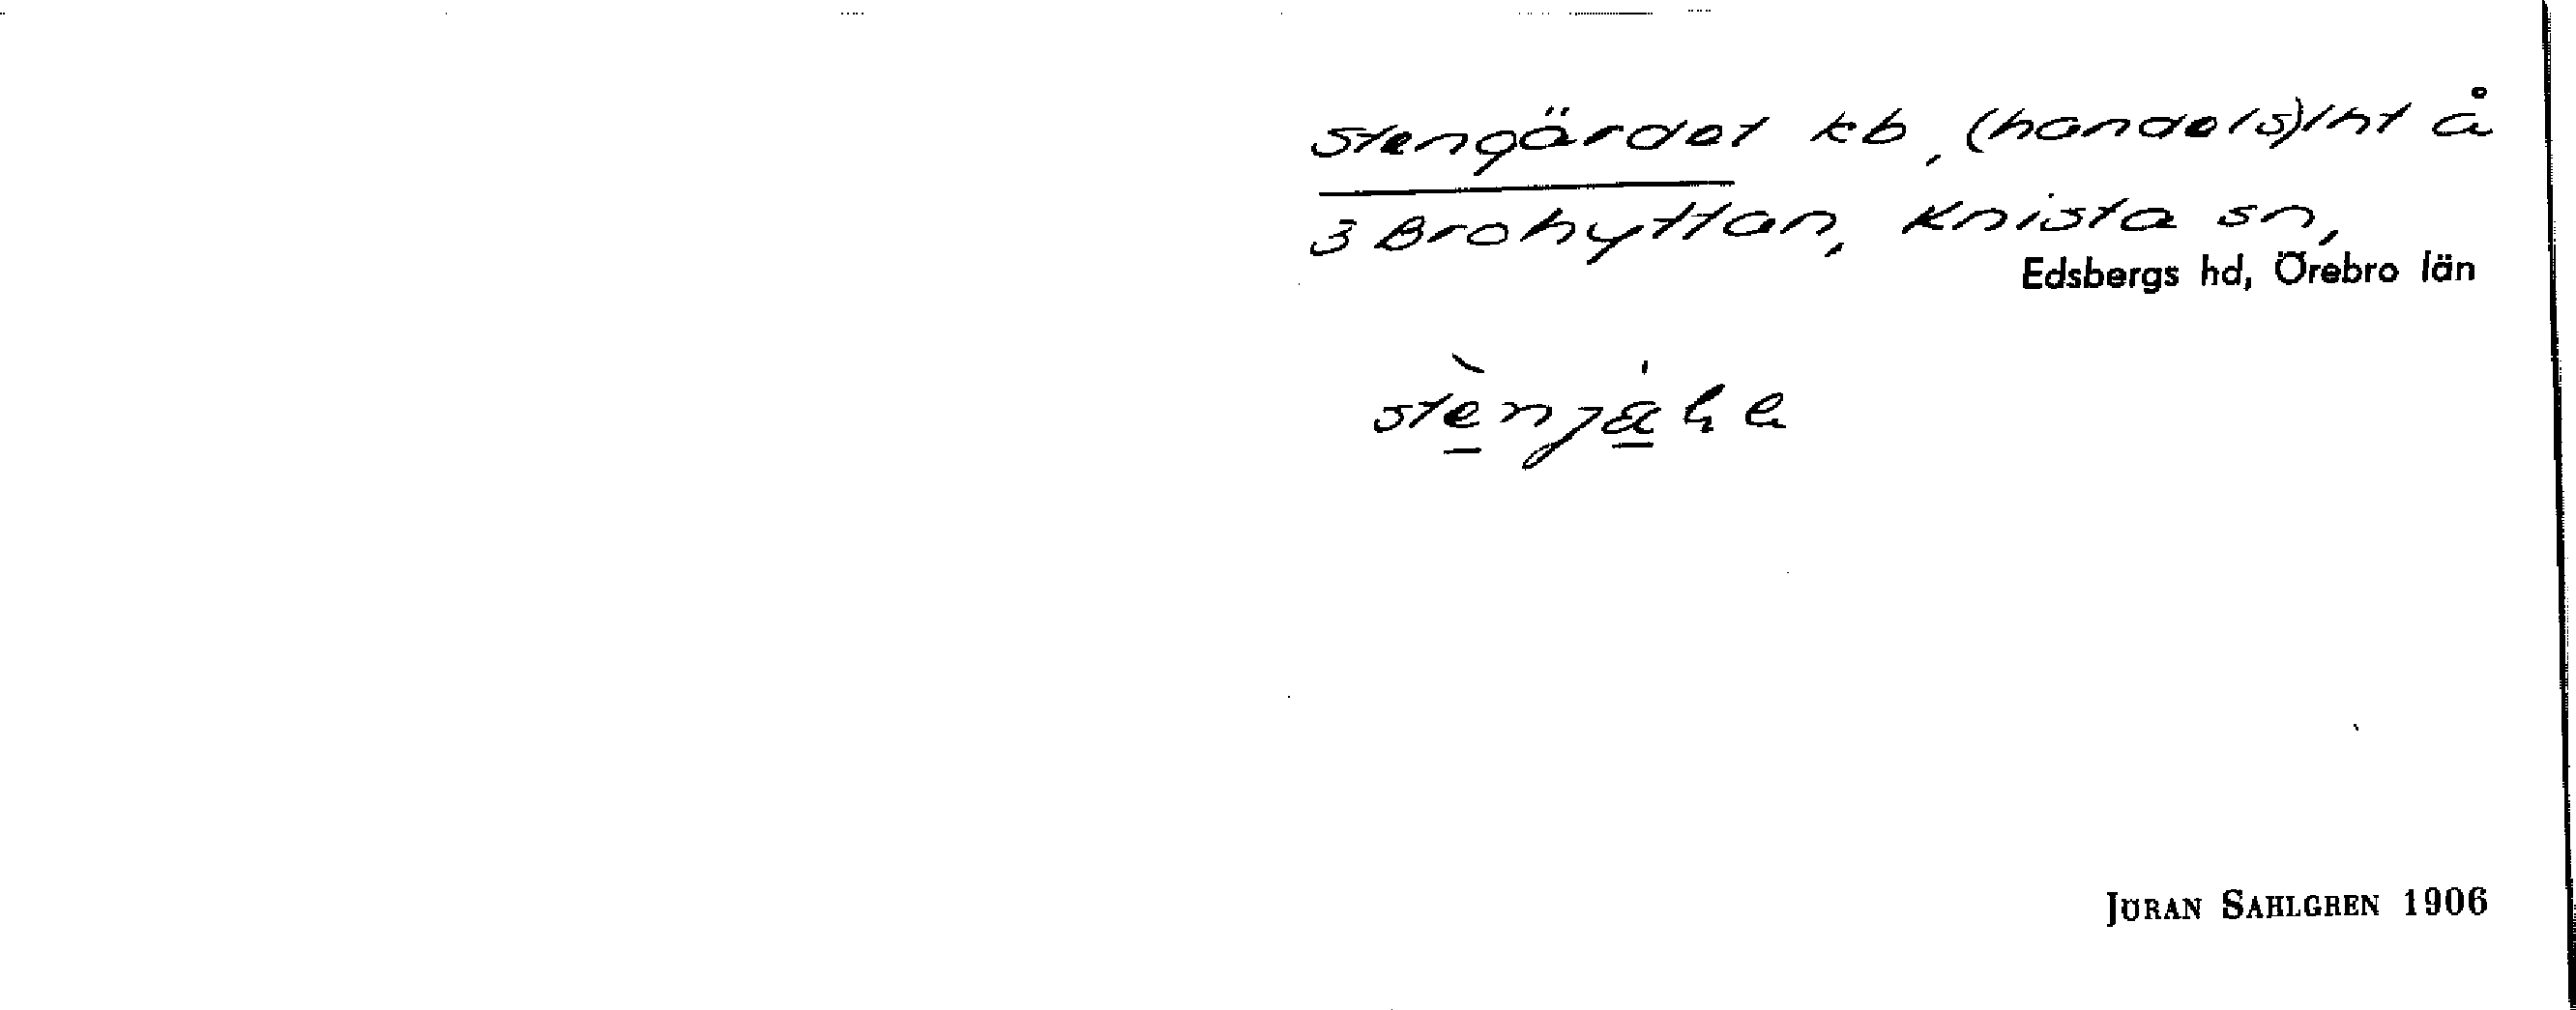 Stengärdet kb, (handels)lht å
3 Brohyttan, Knista sn,
Edsbergs hd, Örebro län
JÖRAN SAHLGREN 1906